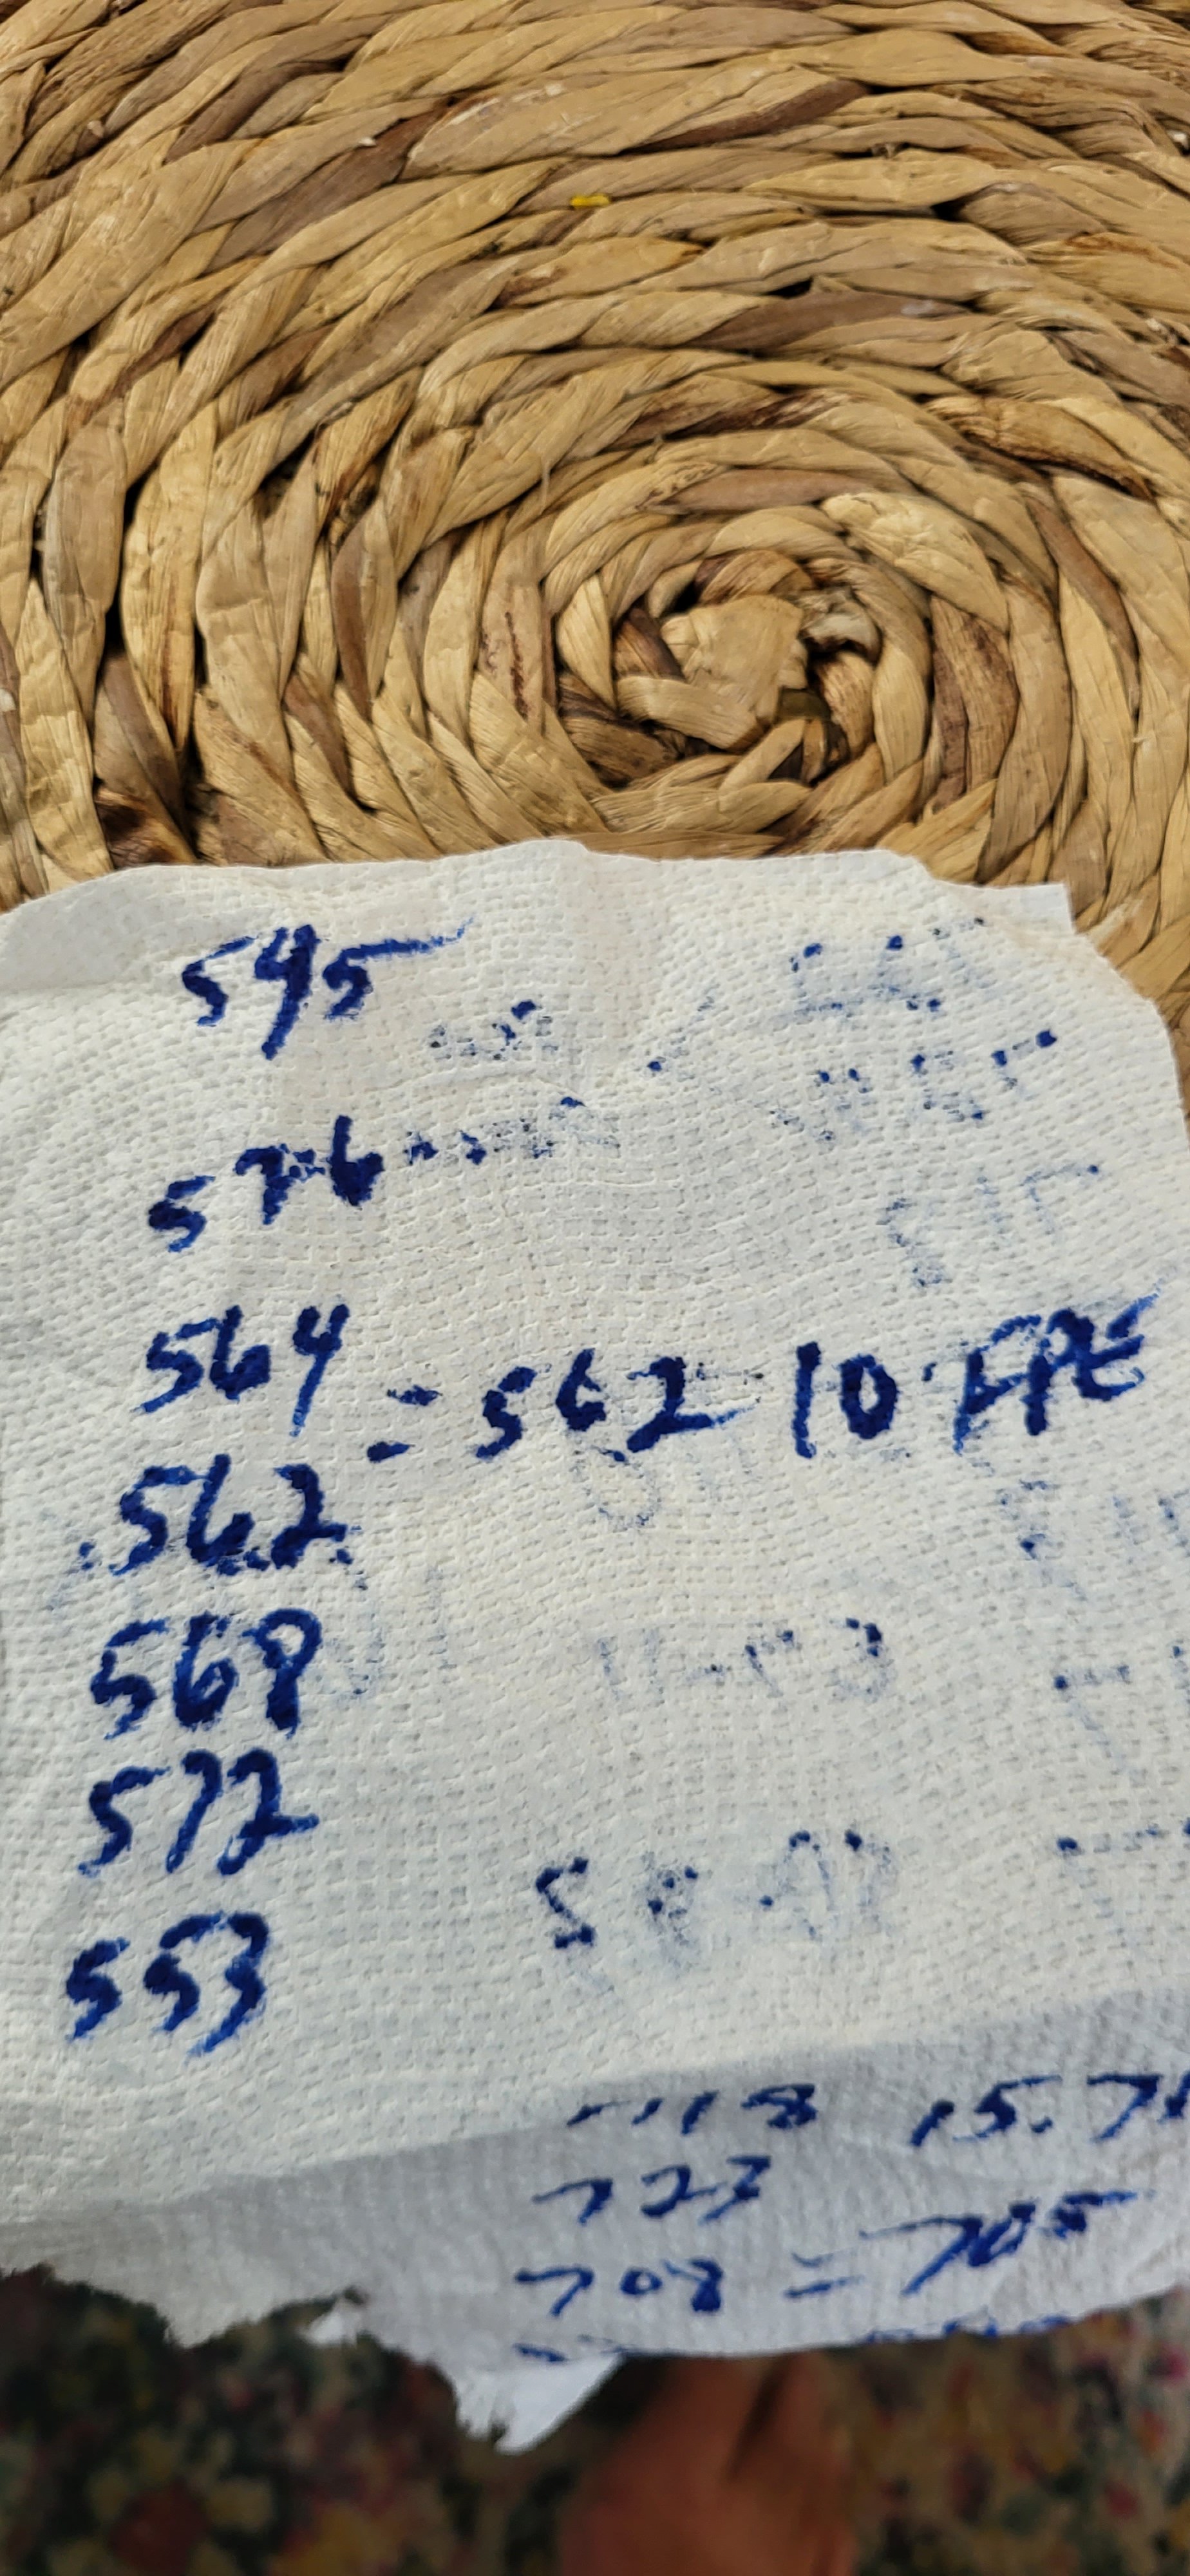 545
576
564
= 562 10 FPE
562
568
572
553
718 15.7
723
708 = 705